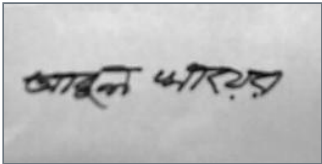 আবুল খায়ের